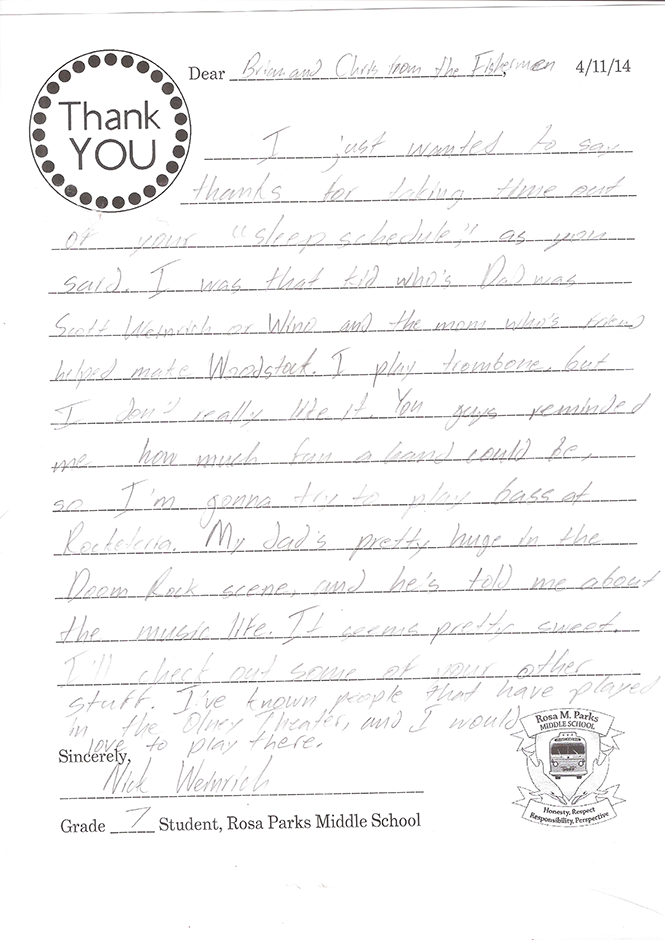 Thank
YOU
Dear Brian and Chris from the Fishermen, 4/11/14
I just wanted to say
thanks for taking time out
of your "sleep schedule," as you
said. I was that kid who's Dad was
Scott Weinrich or Wino and the mom who's friend
helped make Woodstock. I play trombone, but
I don't really like it. You guys reminded
me how much fun a band could be,
so I'm gonna try to play bass at
Rocketeria. My dad's pretty huge in the
Doom Rock scene, and he's told me about
the music life. It seems pretty sweet.
I'll check out some of your other
stuff. I've known people that have played
in the Olney Theater, and I would
love to play there.
Sincerely,
Nick Weinrich
Grade 7 Student, Rosa Parks Middle School
Rosa M. Parks
MIDDLE SCHOOL
Honesty, Respect
Responsibility, Perspective